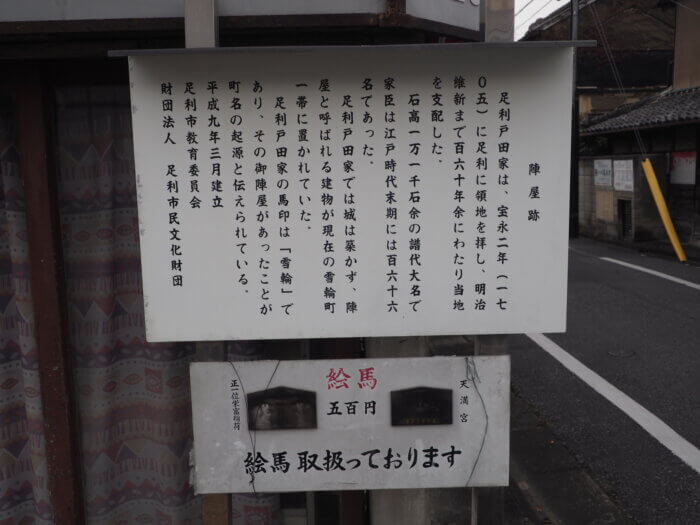 陣屋跡
足利戸田家は、宝永二年（一七
〇五）に足利に領地を拝し、明治
維新まで百六十年余にわたり当地
を支配した。
石高一万一千石余の譜代大名で
家臣は江戸時代末期には百六十六
名であった。
足利戸田家では城は築かず、陣
屋と呼ばれる建物が現在の雪輪町
一帯に置かれていた。
足利戸田家の馬印は「雪輪」で
あり、その御陣屋があったことが
町名の起源と伝えられている。
平成九年三月建立
足利市教育委員会
財団法人　足利市民文化財団
天満宮
絵馬
五百円
正一位栄富稲荷
絵馬取扱っております